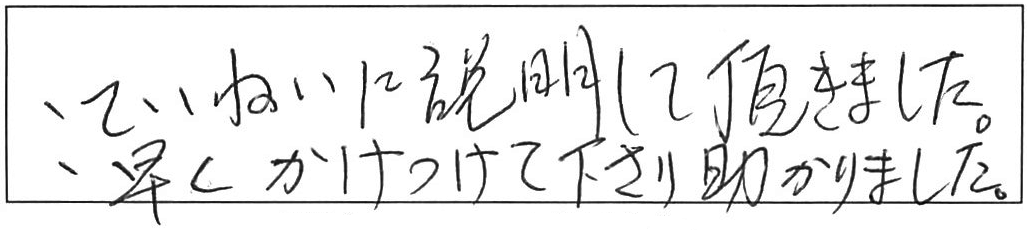 、ていねいに説明して頂きました。
、早くかけつけて下さり助かりました。